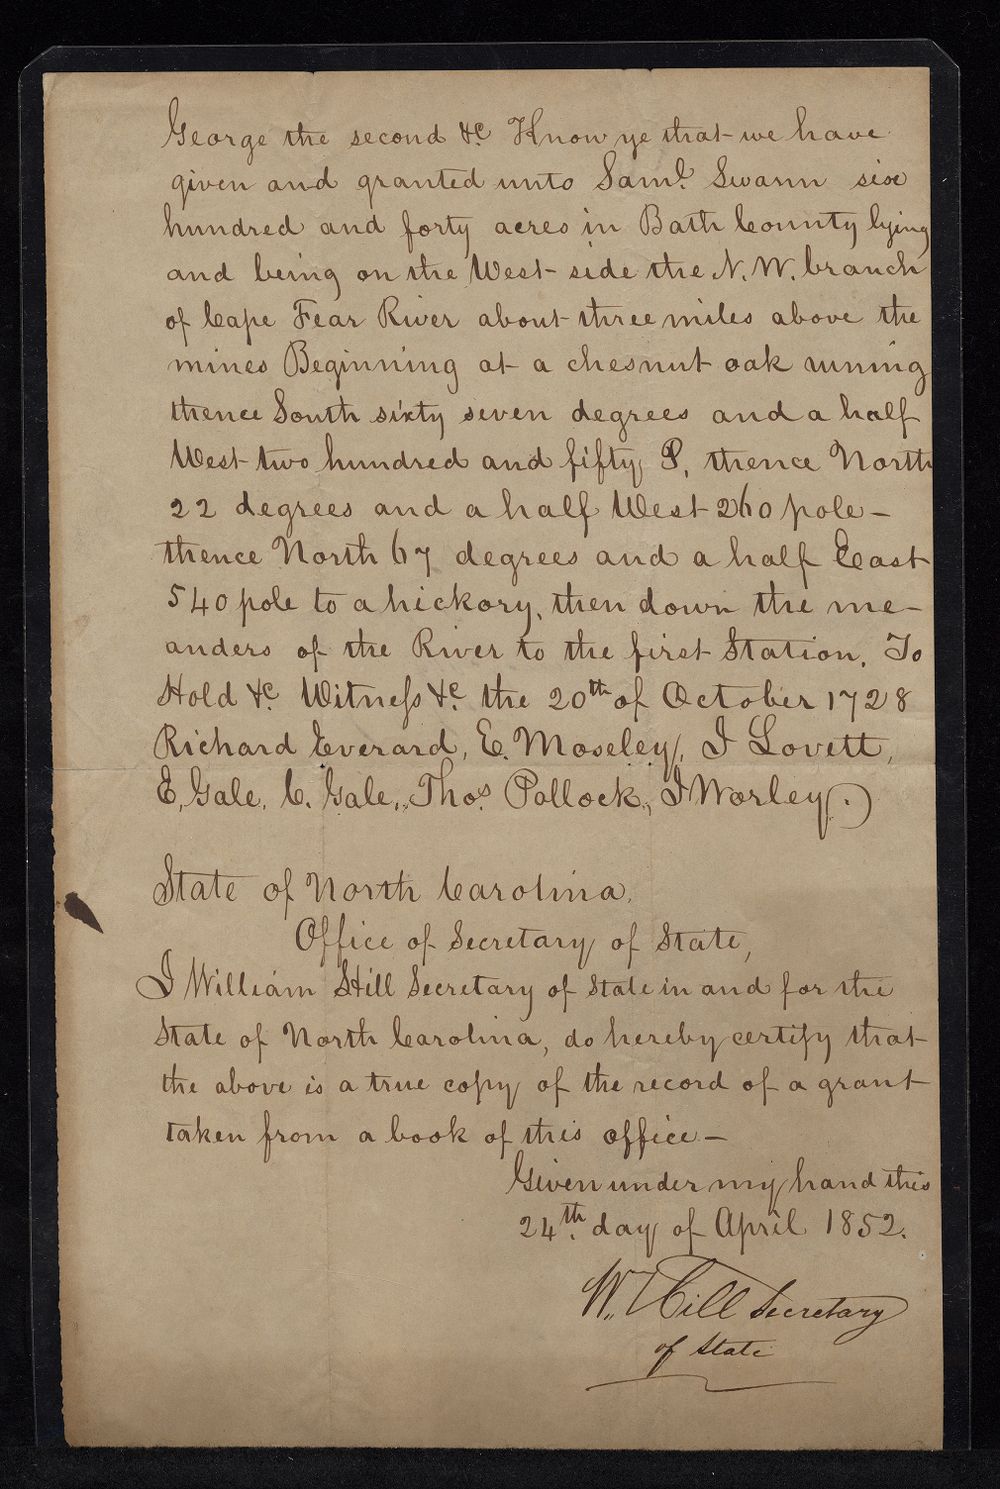 George the second &c Know ye that we have
given and granted unto Saml. Swann six
hundred and forty acres in Bath County lying
and being on the West side the N. W. branch
of Cape Fear River about three miles above the
mines Beginning at a chesnut oak runing
thence South sixty seven degrees and a half
West two hundred and fifty P. thence North
22 degrees and a half West 260 pole -
thence North 67 degrees and a half East
540 pole to a hickory, then down the me-
anders of the River to the first Station. To
Hold &c Witness &c. the 20th of October 1728
Richard Everard, E. Moseley, J Lovett,
E, Gale, C. Gale, Thos. Pollock, J Worley.)
State of North Carolina,
Office of Secretary of State,
I William Hill Secretary of State in and for the
State of North Carolina, do hereby certify that
the above is a true copy of the record of a grant
taken from a book of this office -
Given under my hand this
24th. day of April 1852.
W. Hill Secretary
of State